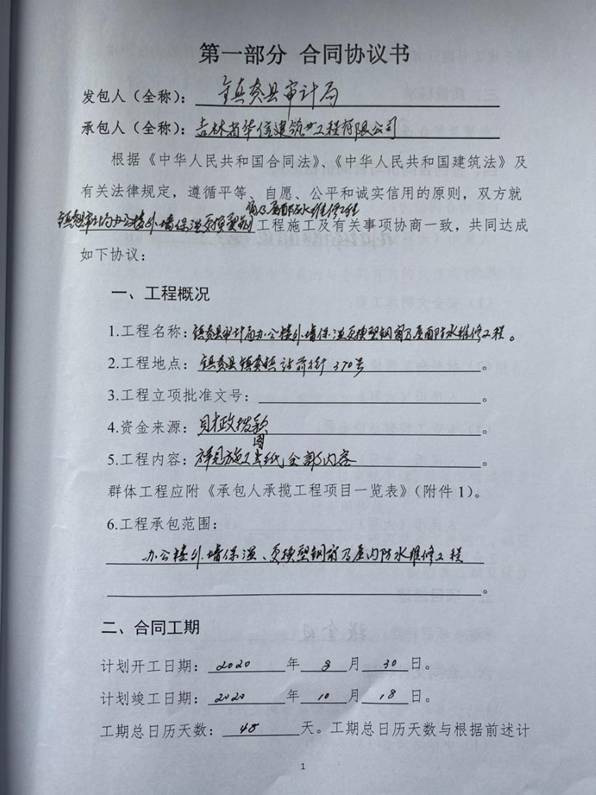 第一部分 合同协议书
发包人（全称）：镇赉县审计局
承包人（全称）：吉林省华信建筑工程有限公司
根据《中华人民共和国合同法》、《中华人民共和国建筑法》及
有关法律规定，遵循平等、自愿、公平和诚实信用的原则，双方就
窗及屋面防水维修工程
办公楼外墙保温、更换塑钢工程施工及有关事项协商一致，共同达成
如下协议：
一、工程概况
1.工程名称：镇赉县审计局办公楼外墙保温更换塑钢窗及屋面防水维修工程。
2.工程地点：镇赉县镇赉镇站前街370号。
3.工程立项批准文号：。
4.资金来源：财政拨款。
5.工程内容：详见施工图纸全部内容。
群体工程应附《承包人承揽工程项目一览表》（附件1）。
6.工程承包范围：
办公楼外墙保温、更换塑钢窗及屋面防水维修工程
。
二、合同工期
计划开工日期：2020年8月30日。
计划竣工日期：2020年10月18日。
工期总日历天数：48天。工期总日历天数与根据前述计
1